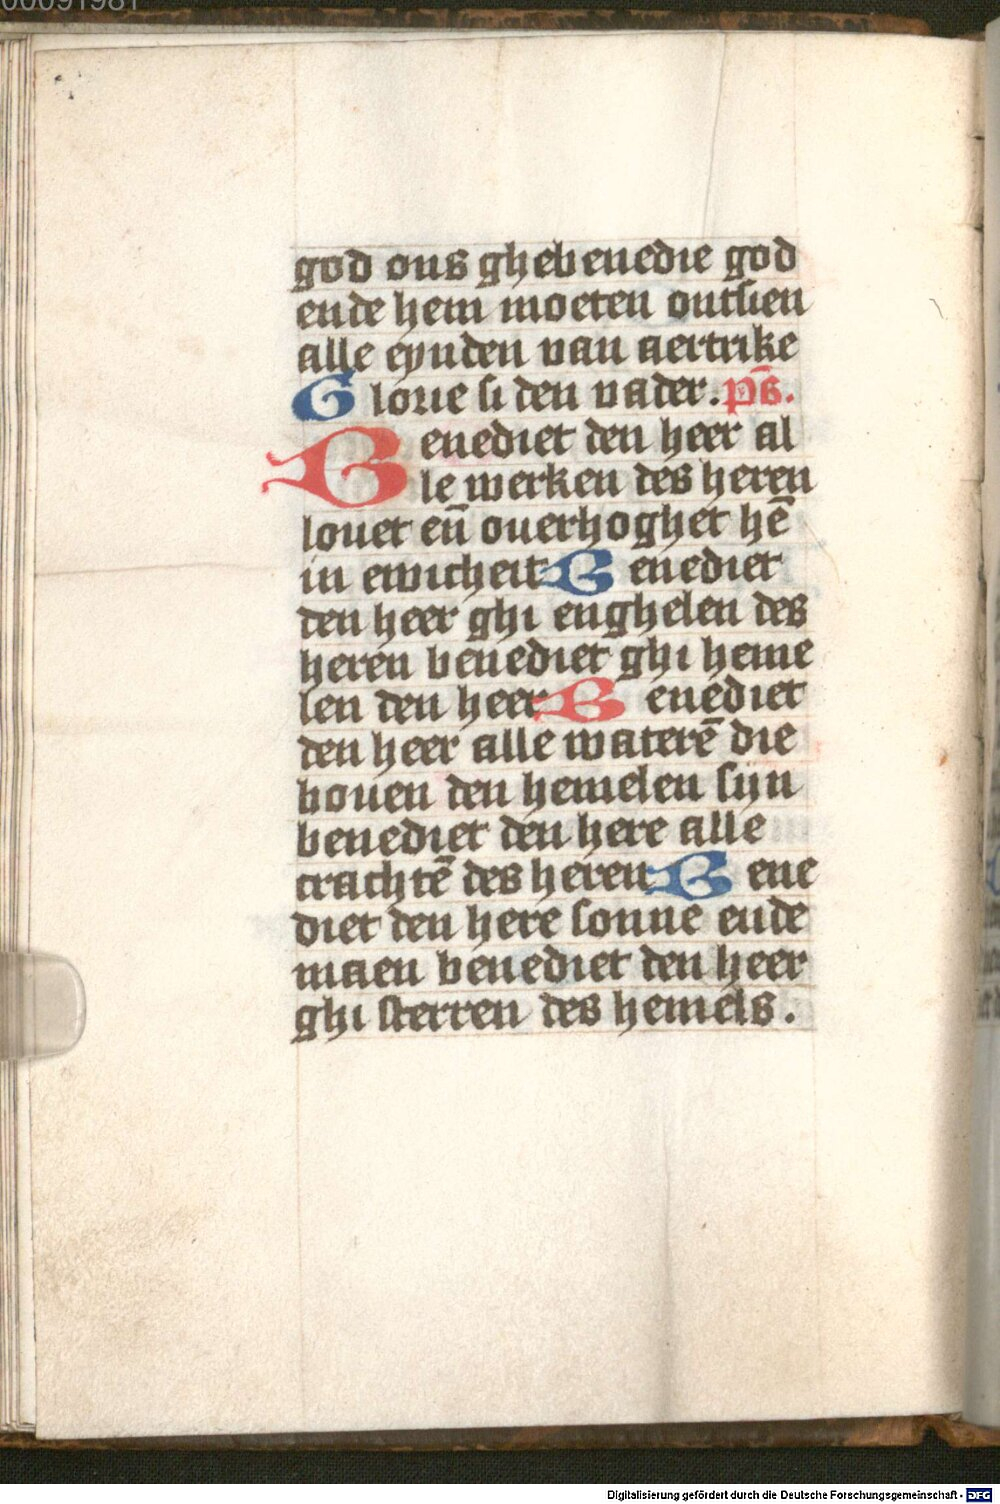 00091981
god ons ghebenedie god
ende hem moeten ontsien
alle eynden van aertrike
Glorie si den vader. p̄s.
Benediet den heer al
le werken des heren
louet en̄ ouerhoghet hē
in ewicheit Benediet
den heer ghi enghelen des
heren benediet ghi heme
len den heer Benediet
den heer alle waterē die
bouen den hemelen sijn
benediet den here alle
crachtē des heren Bene
diet den here sonne ende
maen benediet den heer
ghi sterren des hemels.
Digitalisierung gefördert durch die Deutsche Forschungsgemeinschaft - DFG